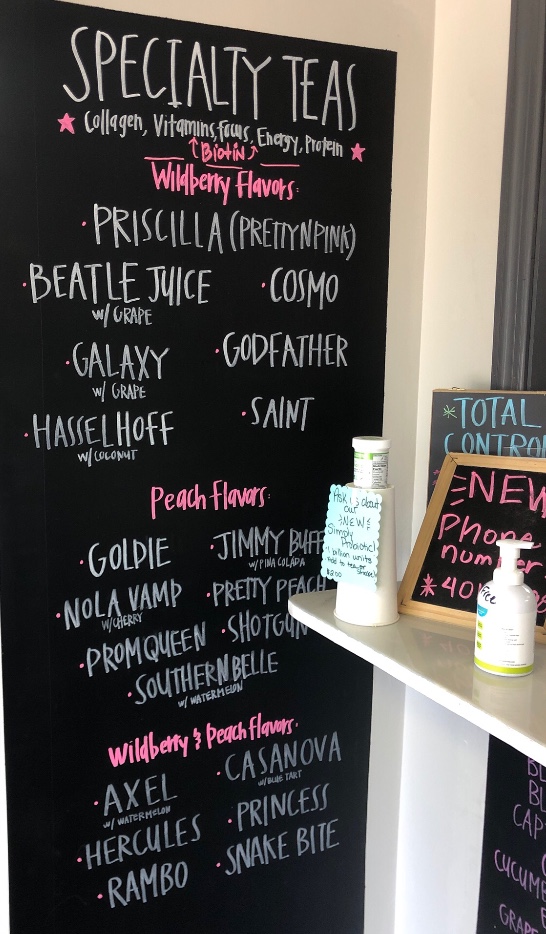 SPECIALTY TEAS
Collagen, Vitamins, Focus, Energy, Protein
Biotin
Wildberry Flavors:
• PRISCILLA (PRETTYNPINK)
• BEATLE JUICE
w/ GRAPE
• COSMO
• GALAXY
w/ GRAPE
• GODFATHER
• HASSELHOFF
w/ COCONUT
• SAINT
Peach Flavors:
• GOLDIE
• JIMMY BUFF
w/ PINA COLADA
• NOLA VAMP
w/ CHERRY
• PRETTY PEACH
• PROM QUEEN
• SHOTGUN
• SOUTHERN BELLE
w/ WATERMELON
Wildberry & Peach Flavors:
• AXEL
w/ WATERMELON
• CASANOVA
w/ BLUE TART
• HERCULES
• PRINCESS
• RAMBO
• SNAKE BITE
Ask us about
our
NEW
Simply
Probiotic!
1 billion units
Add to tea or
shake!
$2.00
*TOTAL
CONTROL
NEW
Phone
number
* 40
Free
BL
BL
CAP
CUCUMB
GRAPE